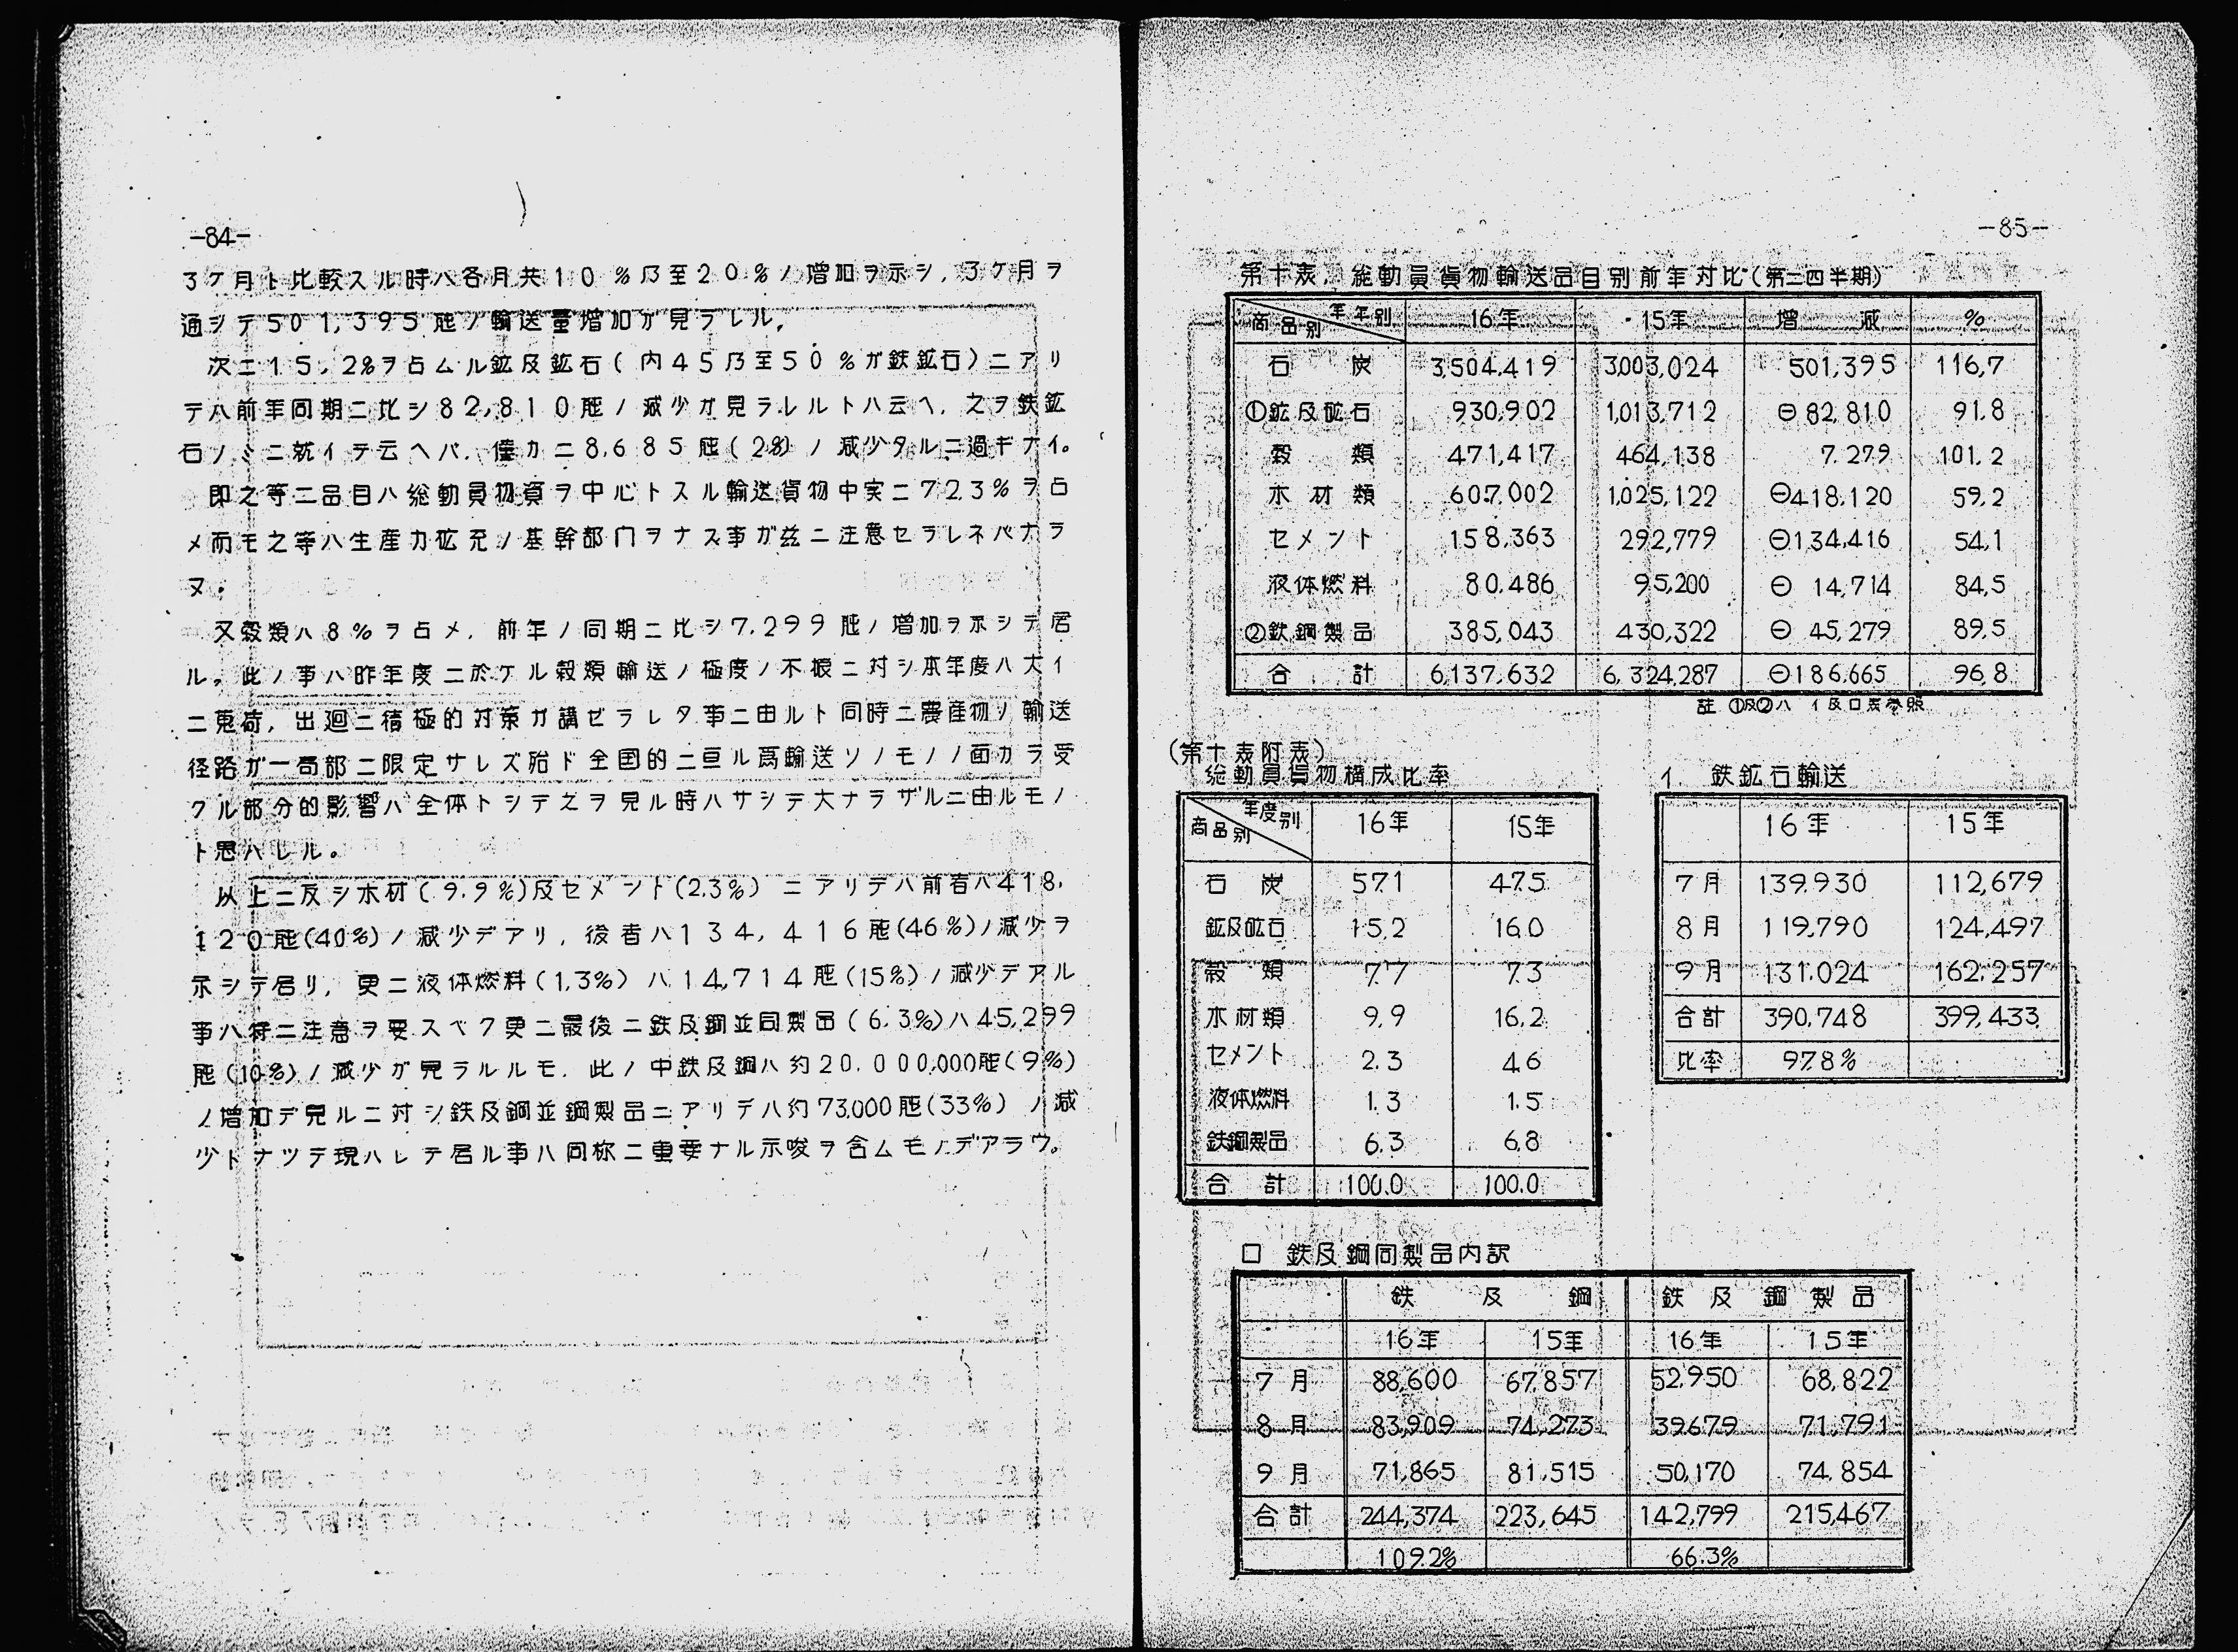 -84-
3ケ月ト比較スル時ハ各月共10%乃至20%ノ増加ヲ示シ,3ケ月ヲ
通シテ501,395瓲ノ輸送量増加ガ見ラレル,
次ニ15.2%ヲ占ムル鉱及鉱石(内45乃至50%ガ鉄鉱石)ニアリ
テハ前年同期ニ比シ82,810瓲ノ減少ガ見ラレルトハ云ヘ,之ヲ鉄鉱
石ノミニ就イテ云ヘバ,僅カニ8,685瓲(2%)ノ減少タルニ過ギナイ。
即之等二品目ハ総動員物資ヲ中心トスル輸送貨物中実ニ72.3%ヲ占
メ而モ之等ハ生産力拡充ノ基幹部門ヲナス事ガ玆ニ注意セラレネバナラ
ヌ.
又穀類ハ8%ヲ占メ,前年ノ同期ニ比シ7,299瓲ノ増加ヲ示シテ居
ル。此ノ事ハ昨年度ニ於ケル穀類輸送ノ極度ノ不振ニ対シ本年度ハ大イ
ニ蒐荷,出廻ニ積極的対策ガ講ゼラレタ事ニ由ルト同時ニ農産物ノ輸送
径路ガ一局部ニ限定サレズ殆ド全国的ニ亘ル為輸送ソノモノノ面カラ受
クル部分的影響ハ全体トシテ之ヲ見ル時ハサシテ大ナラザルニ由ルモノ
ト思ハレル。
以上ニ反シ木材(9.9%)及セメント(2.3%)ニアリテハ前者ハ418,
120瓲(40%)ノ減少デアリ,後者ハ134,416瓲(46%)ノ減少ヲ
示シテ居リ,更ニ液体燃料(1.3%)ハ14,714瓲(15%)ノ減少デアル
事ハ特ニ注意ヲ要スベク更ニ最後ニ鉄及鋼並同製品(6.3%)ハ45,299
瓲(10%)ノ減少ガ見ラルルモ,此ノ中鉄及鋼ハ約20.000,000瓲(9%)
ノ増加デ見ルニ対シ鉄及鋼並鋼製品ニアリテハ約73,000瓲(33%)ノ減
少トナツテ現ハレテ居ル事ハ同様ニ重要ナル示唆ヲ含ムモノデアラウ。
-85-
第十表.総動員貨物輸送品目別前年対比(第二四半期)
商品別 年年別 16年 15年 増減 %
石炭 3,504,419 3,003,024 501,395 116,7
①鉱及砿石 930,902 1,013,712 ⊖82,810 91.8
穀類 471,417 464,138 7.279 101.2
木材類 607,002 1,025,122 ⊖418,120 59,2
セメント 158,363 292,779 ⊖134,416 54,1
液体燃料 80,486 95,200 ⊖14,714 84,5
②鉄鋼製品 385,043 430,322 ⊖45,279 89,5
合計 6,137,632 6,324,287 ⊖186,665 96,8
註 ①及②ハ イ及ロ表参照
(第十表附表)
総動員貨物構成比率
商品別 年度別 16年 15年
石炭 57.1 47.5
鉱及砿石 15,2 16.0
穀類 7.7 7.3
木材類 9,9 16,2
セメント 2.3 4.6
液体燃料 1.3 1.5
鉄鋼製品 6.3 6.8
合計 100.0 100.0
イ 鉄鉱石輸送
16年 15年
7月 139,930 112,679
8月 119,790 124,497
9月 131,024 162,257
合計 390,748 399,433
比率 97.8%
ロ 鉄及鋼同製品内訳
鉄及鋼 鉄及鋼製品
16年 15年 16年 15年
7月 88,600 67,857 52,950 68,822
8月 83,909 74,273 39,679 71,791
9月 71,865 81,515 50,170 74,854
合計 244,374 223,645 142,799 215,467
109.2% 66.3%